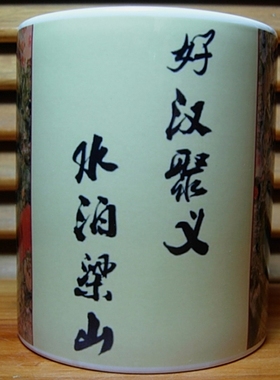 好汉聚义
水泊梁山